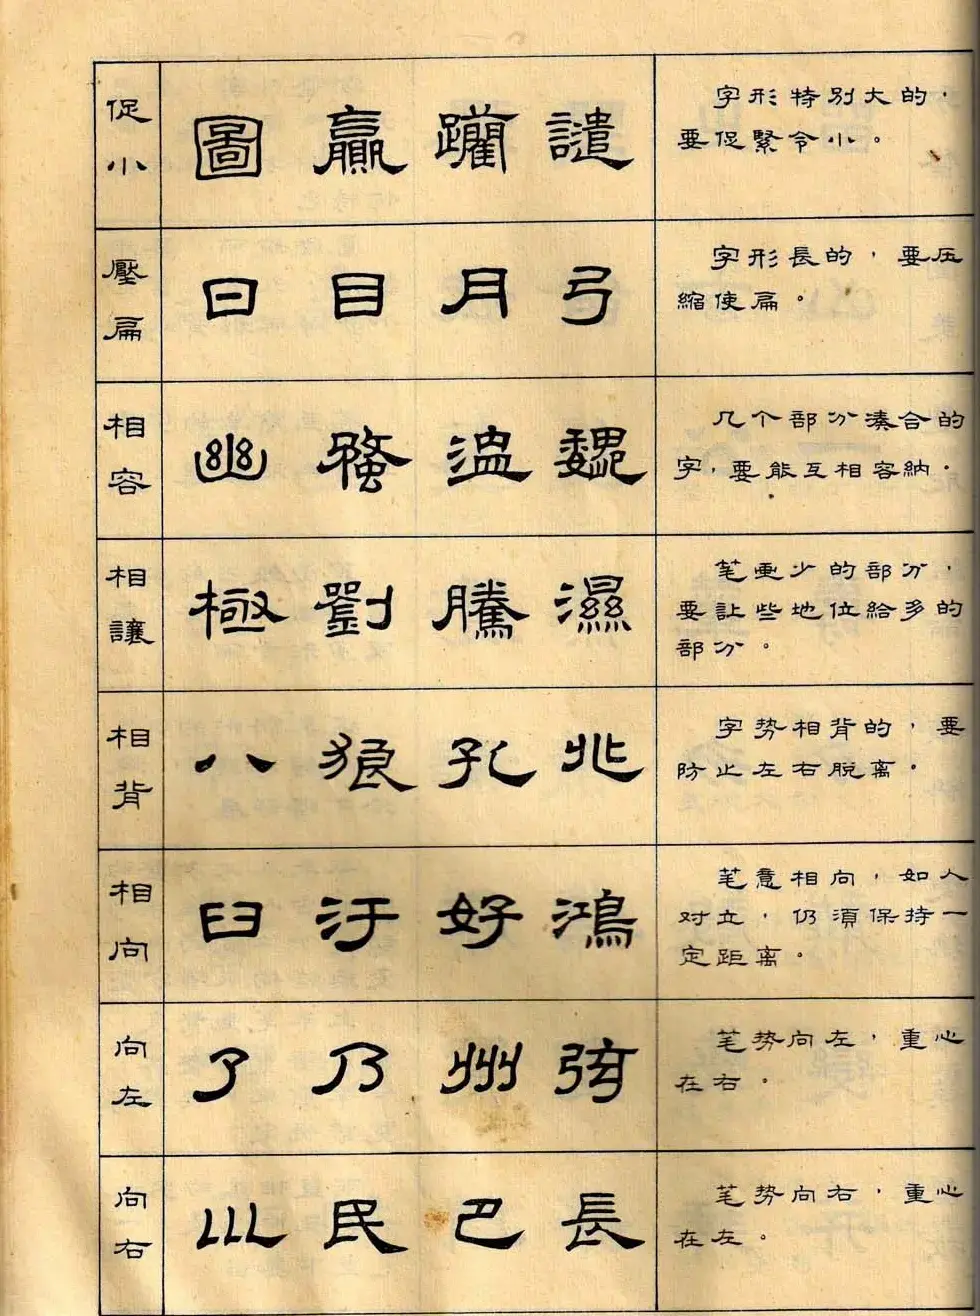 促小
圖 贏 躪 譴
字形特别大的，
要促緊令小。
壓扁
曰 目 月 弓
字形長的，要压
縮使扁。
相容
幽 盨 魏
几个部分湊合的
字，要能互相容納。
相讓
極 劉 騰 濕
笔画少的部分，
要让些地位給多的
部分。
相背
八 狼 孔 兆
字势相背的，要
防止左右脱离。
相向
臼 汙 好 鴻
笔意相向，如人
对立，仍須保持一
定距离。
向左
了 乃 州 弦
笔势向左，重心
在右。
向右
民 巴 長
笔势向右，重心
在左。